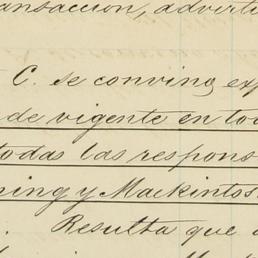 ansaccion, adverti
C. se convino exp
de vigente en tod
todas las respons
ning y Mackintos
Resulta que